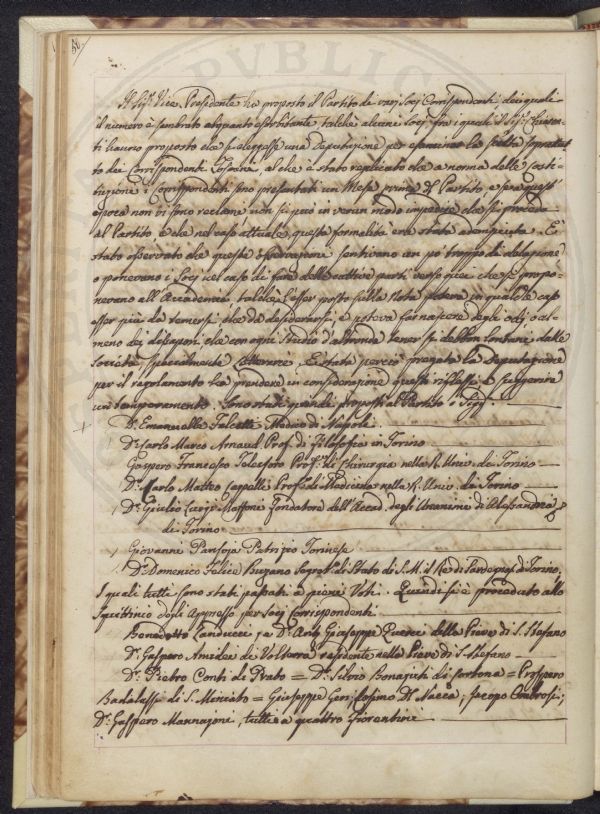 50.
Il Sig.r Vice Presidente ha proposto il Partito di varj Socj Corrispondenti, dei quali
il numero è sembrato alquanto esorbitante, talchè alcuni Socj, fra i quali il Sig.r
ti hanno proposto che si eleggesse una Deputazione per esaminar la scelta soprattut
to dei Corrispondenti Toscani, al che è stato replicato che a norma delle Costi-
tuzioni i Corrispondenti sono presentati un Mese prima del Partito, e se a quest'
epoca non vi sono reclami non si può in verun modo impedire che si proceda
al Partito e che nel caso attuale, questa formalità era stata adempiuta. È
stato osservato che queste osservazioni sentivano un po' troppo di delazione
o ponevano i Socj nel caso di fare delle cattive parti verso quei che si propo-
nevano all'Accademia, talchè l'esser posto sulla Nota poteva in qualche caso
esser più da temersi, che da desiderarsi, e poteva far nascere degli odj o al-
meno dei dissapori, che con ogni studio d'altronde tener si debbon lontani dalle
Società specialmente Letterarie. È stata perciò pregata la Deputazione
per il regolamento da prendere in considerazione questi riflessi e suggerire
un temperamento. Sono stati quindi proposti al Partito i Sigg.ri
D.r Emanuelle Falcetti Medico di Napoli.
D.r Carlo Marco Arnaud Prof. di Filosofia in Torino
Gaspero Francesco Prof.r di Chirurgia nella R. Univ. di Torino
D.r Carlo Matteo Cappelli Prof.r di Medicina nella R. Univ. di Torino
D.r Giulio Luigi Maffoni Fondatore dell'Accad. degli Unanimi di Alessandria e
di Torino
Giovanni Pansoja Patrizio Torinese
D.r Domenico Felice Buzano Segret.o di Stato di S. M. il Re di Sardegna di Torino,
I quali tutti sono stati passati a pieni Voti. Quindi si è proceduto allo
Squittinio degli Appresso per Socj Corrispondenti
Benedetto Landucci, D.r Ant. Giuseppe Querci della Pieve di S. Stefano
D.r Gaspero Amidei di Volterra residente nella Pieve di S. Stefano
D.r Pietro Conti di Prato = D.r Silvio Bonajuti di Cortona = Prospero
Badalassi di S. Miniato = Giuseppe Geri, Cosimo Del Nacca, Jacopo Ombrosi,
D.r Gaspero Mannajoni, tutti e quattro Fiorentini